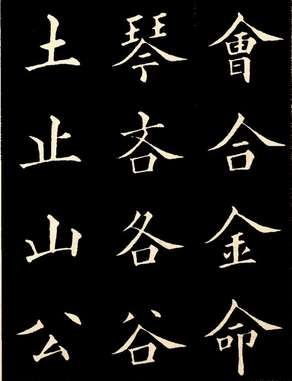 會合金命
琴吝各谷
土止山公